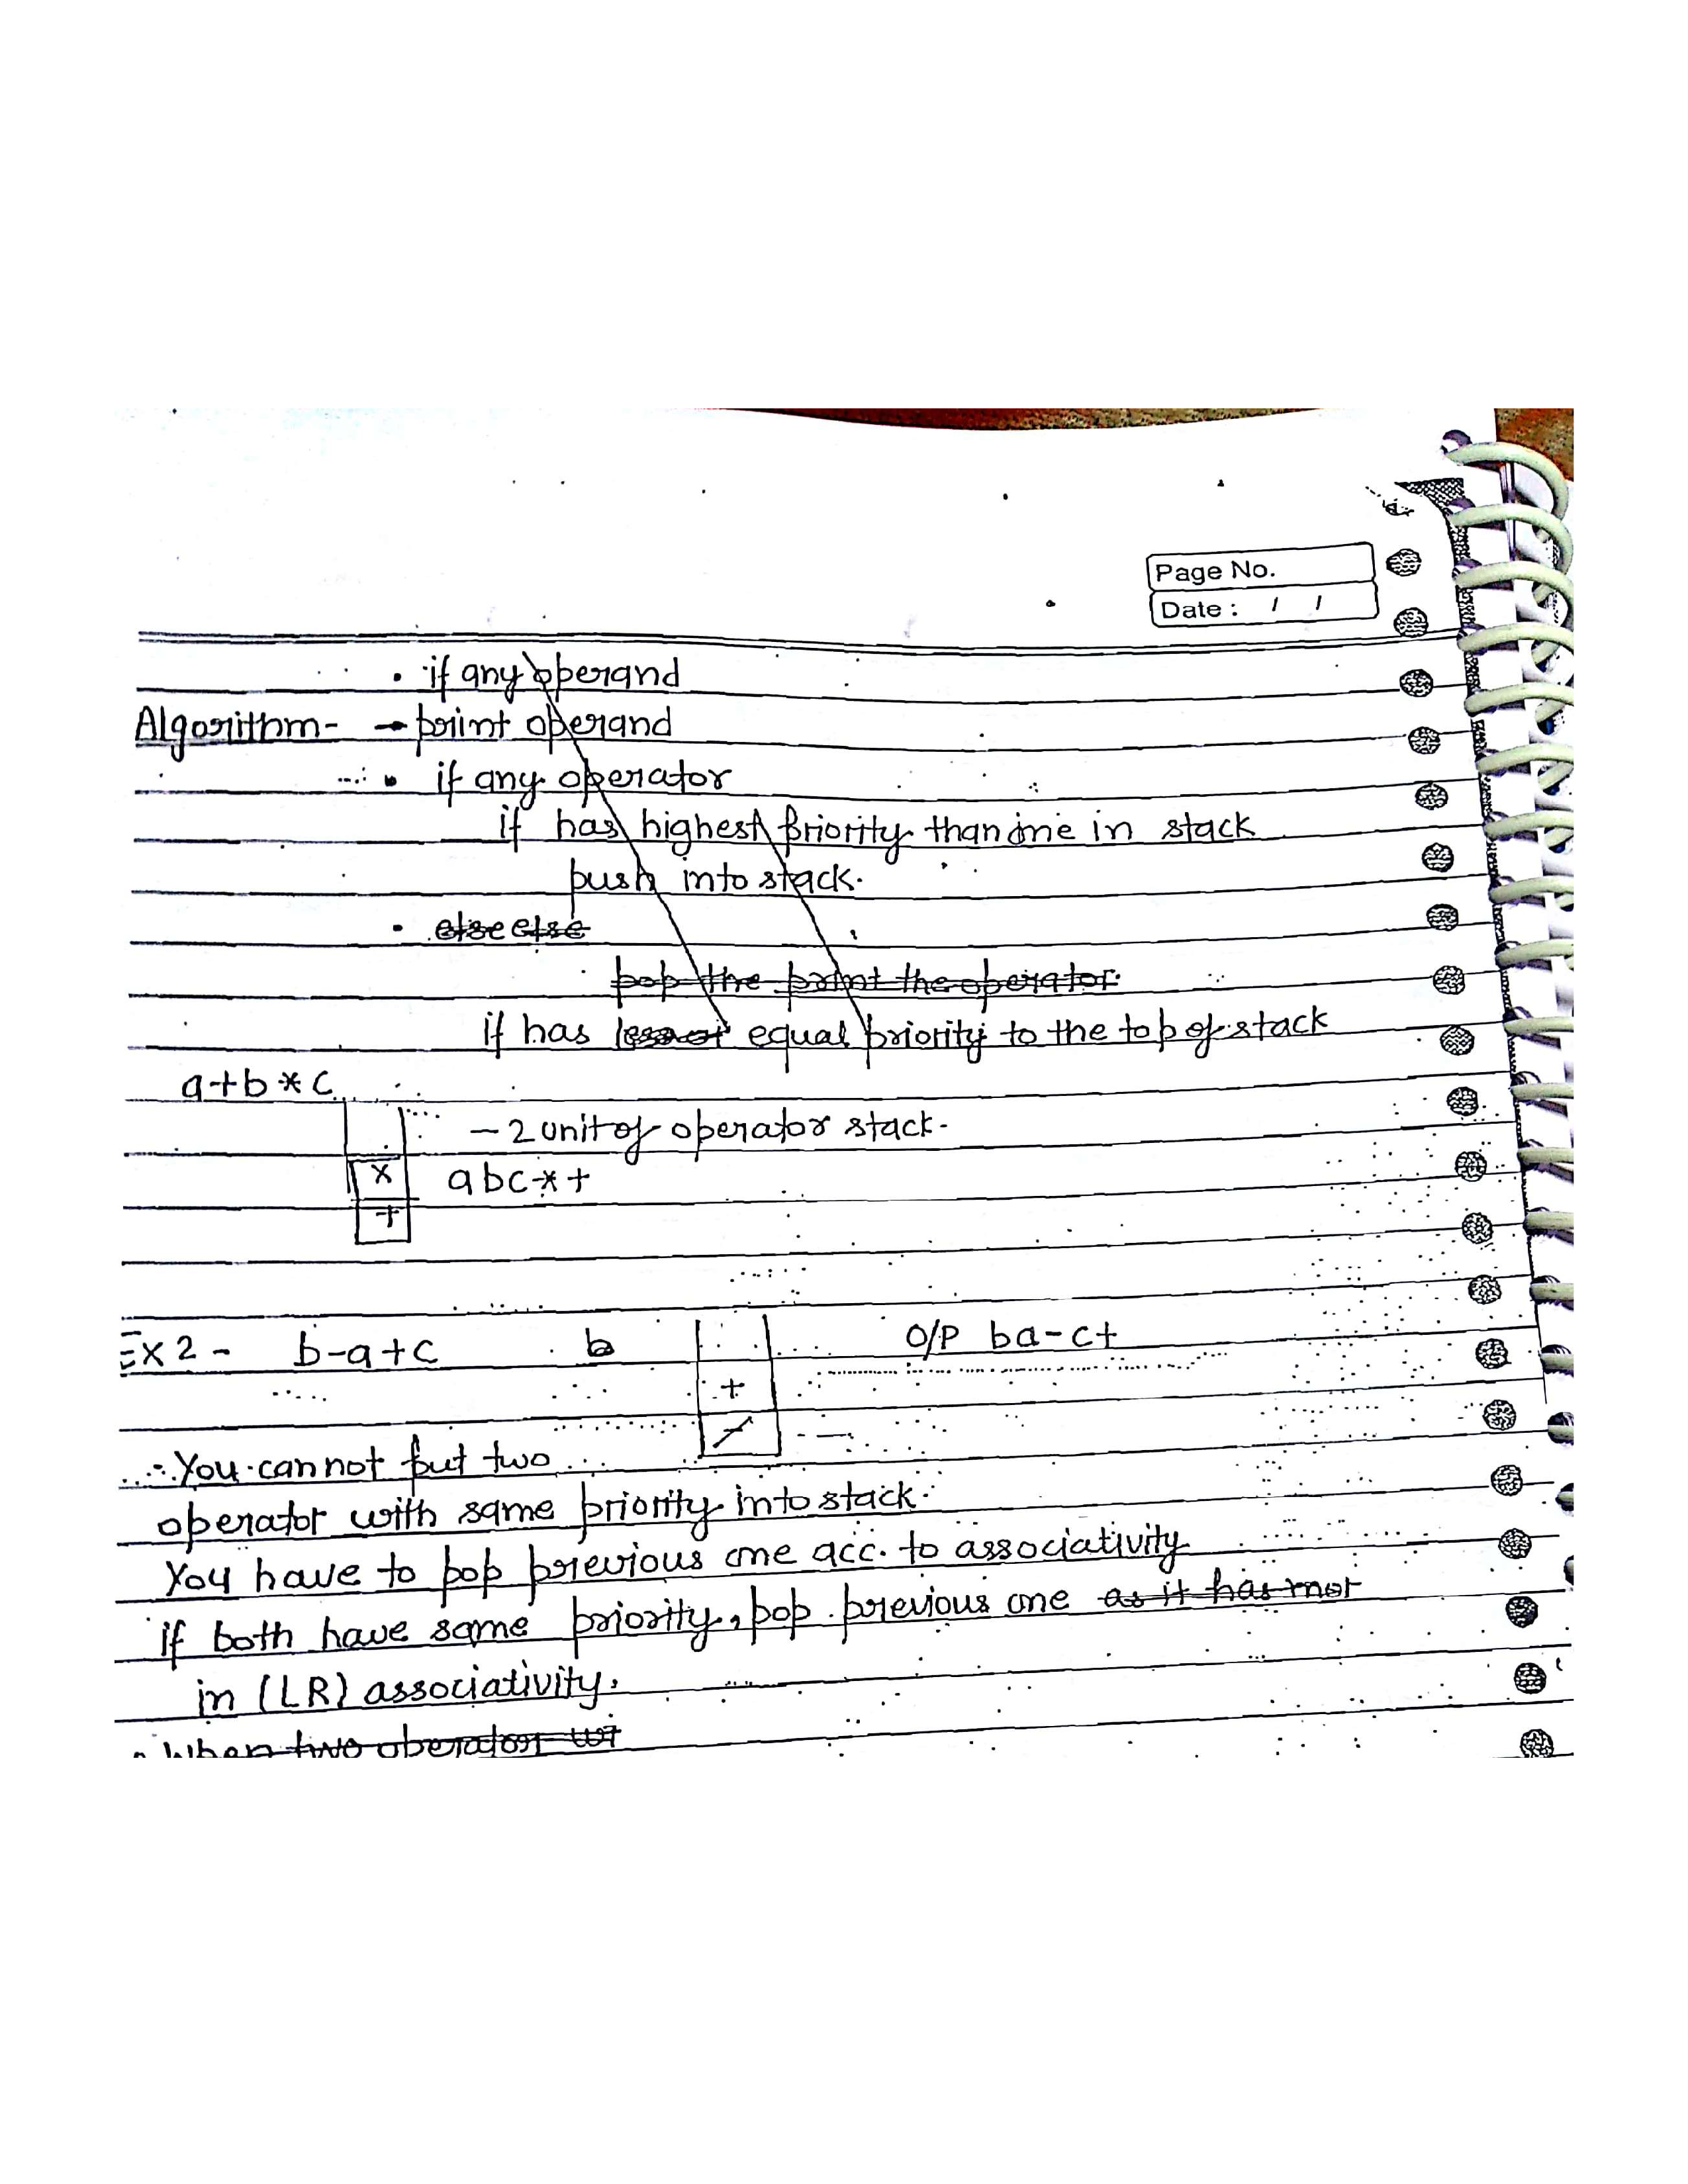 Page No.
Date : / /
• if any operand
Algorithm- → print operand
• if any operator
if has highest priority than one in stack
push into stack.
• else else
pop the print the operator.
if has less or equal priority to the top of stack
a+b*c
- 2 unit of operator stack.
x abc*+
+
Ex 2 - b-a+c b O/P ba-c+
+
-
∴ You cannot put two
operator with same priority into stack.
You have to pop previous one acc. to associativity
if both have same priority, pop previous one as it has
in (LR) associativity.
• When two operator